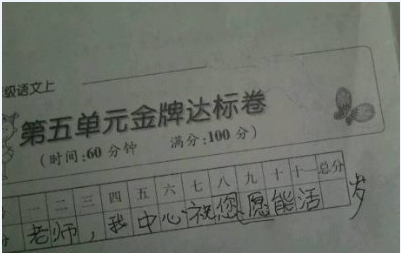 级语文上
第五单元金牌达标卷
(时间:60分钟 满分:100分)
一 二 三 四 五 六 七 八 九 十 十一 总分
分 老师,我中心祝您愿能活 岁